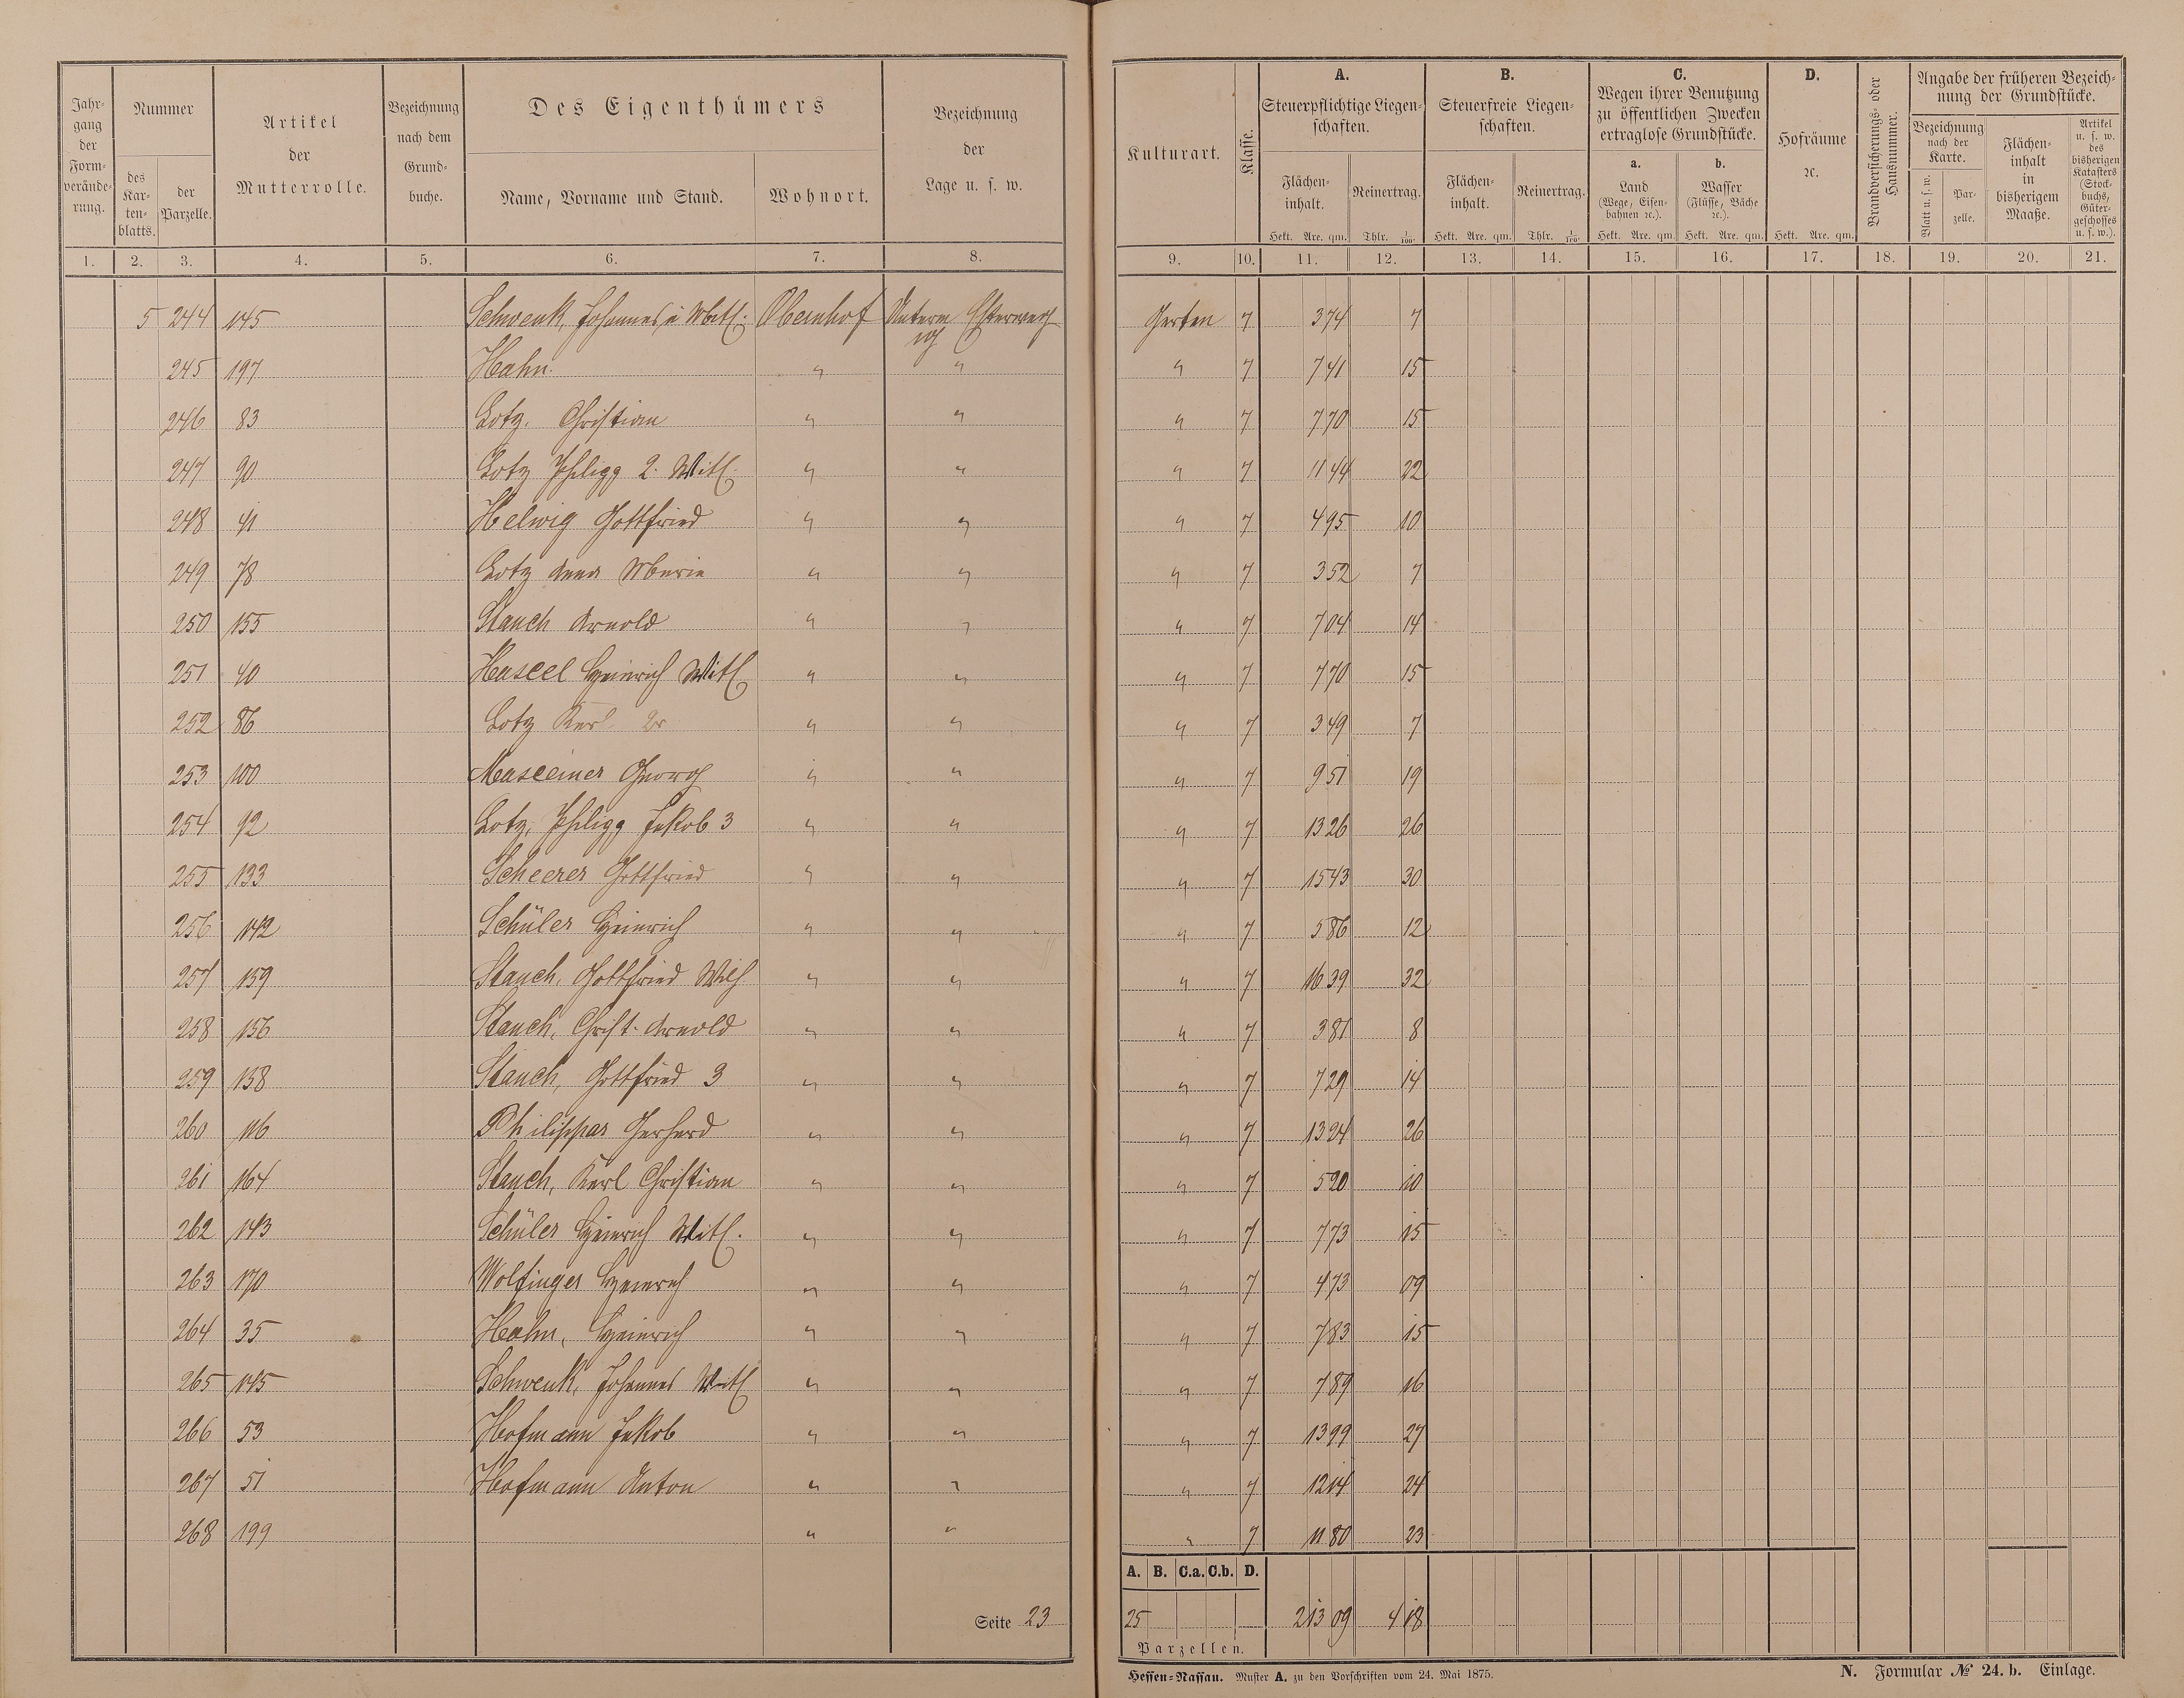 Jahrgang der Formveränderung.
Nummer
des Kartenblatts.
der Parzelle.
Artikel der Mutterrolle.
Bezeichnung nach dem Grundbuche.
Des Eigenthümers
Name, Vorname und Stand.
Wohnort.
Bezeichnung der Lage u. s. w.
Kulturart.
Klasse.
A. Steuerpflichtige Liegenschaften.
Flächeninhalt. Hekt. Are. qm.
Reinertrag. Thlr. 1/100.
B. Steuerfreie Liegenschaften.
Flächeninhalt. Hekt. Are. qm.
Reinertrag. Thlr. 1/100.
C. Wegen ihrer Benutzung zu öffentlichen Zwecken ertraglose Grundstücke.
a. Land (Wege, Eisenbahnen ꝛc.). Hekt. Are. qm.
b. Wasser (Flüsse, Bäche ꝛc.). Hekt. Are. qm.
D. Hofräume ꝛc. Hekt. Are. qm.
Brandversicherungs- oder Hausnummer.
Angabe der früheren Bezeichnung der Grundstücke.
Bezeichnung nach der Karte.
Blatt u. s. w.
Parzelle.
Flächeninhalt in bisherigem Maaße.
Artikel u. s. w. des bisherigen Katasters (Stockbuchs, Gütergeschosses u. s. w.).
1. 2. 3. 4. 5. 6. 7. 8. 9. 10. 11. 12. 13. 14. 15. 16. 17. 18. 19. 20. 21.
5 244 145 Schwenk, Johannes Obernhof Unterm Garten 7 374 7
245 197 Hahn " " " 7 741 15
246 83 Lotz, Christian " " " 7 770 15
247 90 Lotz Philipp 2. Witl. " " " 7 1144 22
248 41 Helwig Gottfried " " " 7 495 10
249 78 Lotz Anna Maria " " " 7 352 7
250 155 Stauch Arnold " " " 7 704 14
251 40 Hassel Heinrich Witl. " " " 7 770 15
252 86 Lotz Karl 2r " " " 7 349 7
253 100 Masseiner Georg " " " 7 951 19
254 92 Lotz, Philipp Jakob 3 " " " 7 1326 26
255 133 Scheerer Gottfried " " " 7 1543 30
256 142 Schüler Heinrich " " " 7 586 12
257 159 Stauch, Gottfried Wilh. " " " 7 1639 32
258 156 Stauch, Christ. Arnold " " " 7 381 8
259 158 Stauch, Gottfried 3 " " " 7 729 14
260 116 Philippar Gerhard " " " 7 1324 26
261 164 Stauch, Karl Christian " " " 7 520 10
262 143 Schüler Heinrich Witl. " " " 7 773 15
263 170 Wolfinger Heinrich " " " 7 473 09
264 35 Hahn, Heinrich " " " 7 783 15
265 145 Schwenk, Johannes Witl " " " 7 789 16
266 53 Hofmann Jakob " " " 7 1399 27
267 51 Hofmann Anton " " " 7 1214 24
268 199 " " " 7 1180 23
A. B. C.a. C.b. D.
Seite 23
25 2 13 09 4 18
Parzellen.
Hessen-Nassau. Muster A. zu den Vorschriften vom 24. Mai 1875.
N. Formular № 24. b. Einlage.